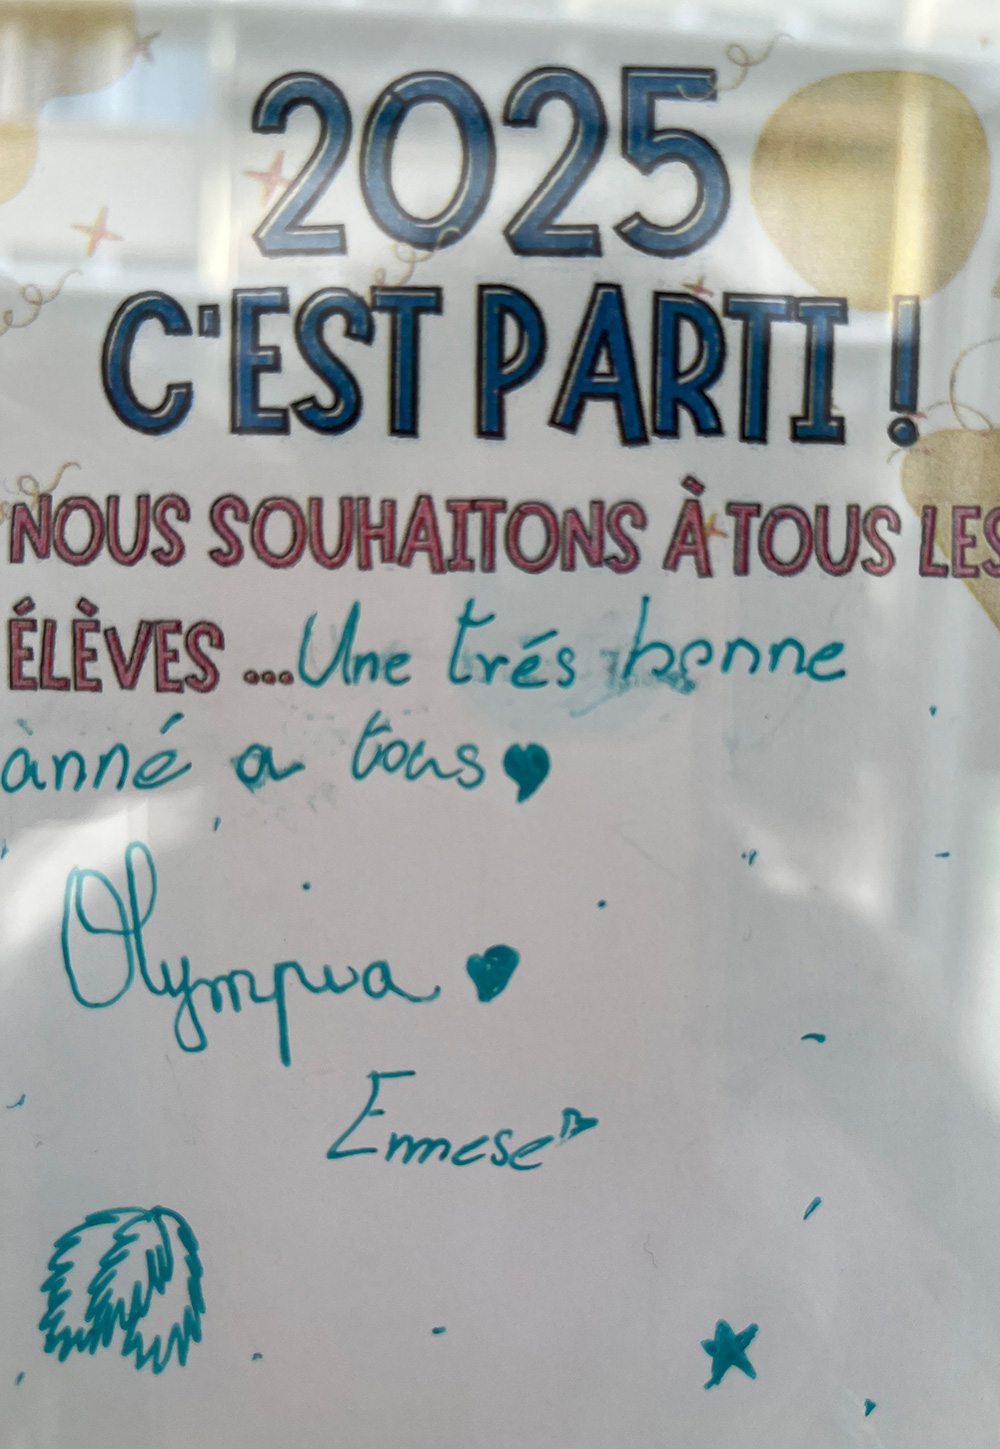 2025
C'EST PARTI !
NOUS SOUHAITONS À TOUS LES
ÉLÈVES ... Une trés bonne
anné a tous
Olympia
Emese